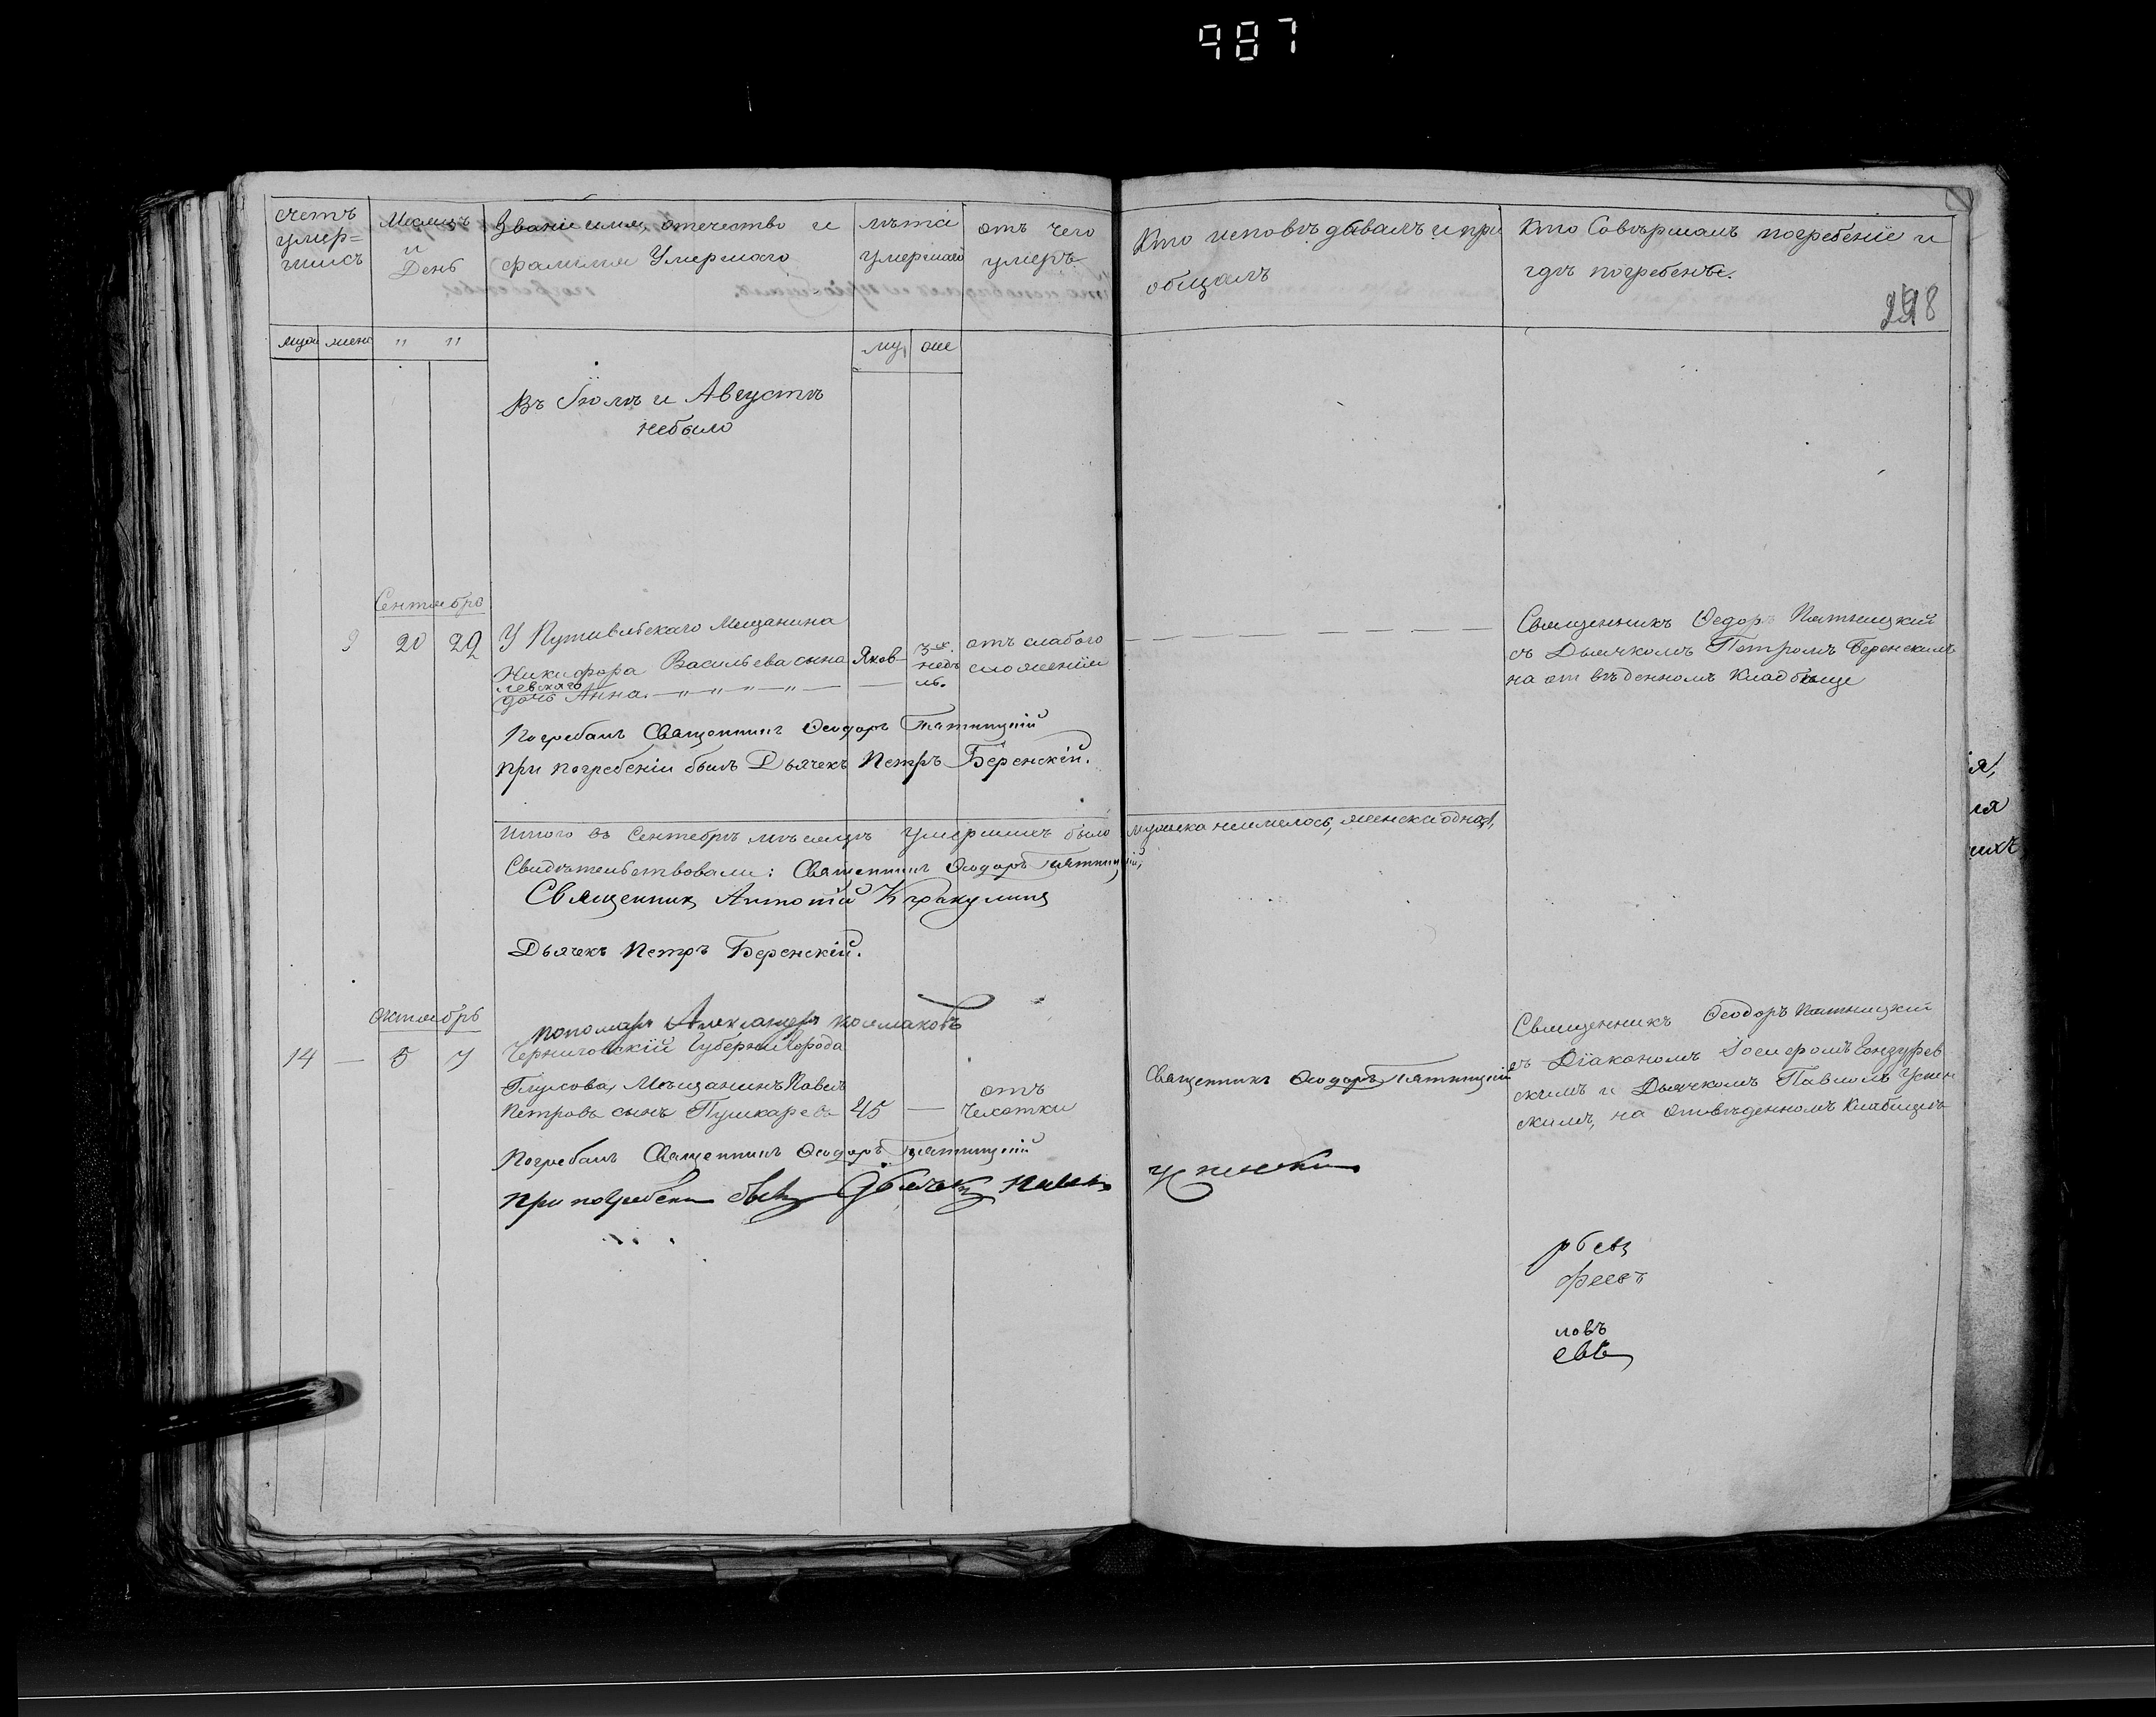 987
счетъ умер= шихъ
Месяцъ и День
Званіе имя, отечество и фамилія Умершаго
лѣта умершаго
отъ чего умеръ
Кто исповѣдывалъ и при общалъ
Кто Совѣршалъ погребеніе и гдѣ погребенъ.
298
муж жен " " му же
Въ Іюлѣ и Августѣ
небыло
Сентябрь
9 20 22
У Путивльскаго Мещанина
Никифора Васильева сына Яков
левскаго
дочь Анна. 3х недѣ ль.
отъ слабого
сложенія
Священникъ Федоръ Пятницкій
съ Дьячкомъ Петромъ Беренскимъ
на отвѣденномъ Кладбище
Погребалъ Священникъ Феодоръ Пятницкій
при погребеніи былъ Дьячекъ Петръ Беренскій.
Итого въ Сентебрѣ мѣсяцѣ умершихъ было мужска неимелось, женска одна,
Свидѣтельствовали: Священникъ Феодоръ Пятницкій,
Священникъ Антоній
Дьячекъ Петръ Беренскій.
Октябрь
пономарь Александръ
14 — 5 7
Черниговскій Губерніи города
Глухова, Мѣщанинъ Павелъ
Петровъ сынъ Пушкаревъ 45 —
отъ
Чехотки
Священникъ Феодоръ Пятницкій
Священникъ Феодоръ Пятницкій
съ Діакономъ Іосифомъ
скимъ и Дьячкомъ Павломъ Успен
скимъ, на Отвѣденномъ Клабищѣ
Погребалъ Священникъ Феодоръ Пятницкій
при погребени былъ Дьячекъ Павелъ Успенски
рбевъ
феевъ
ловъ
евъ
я,
ія
ихъ